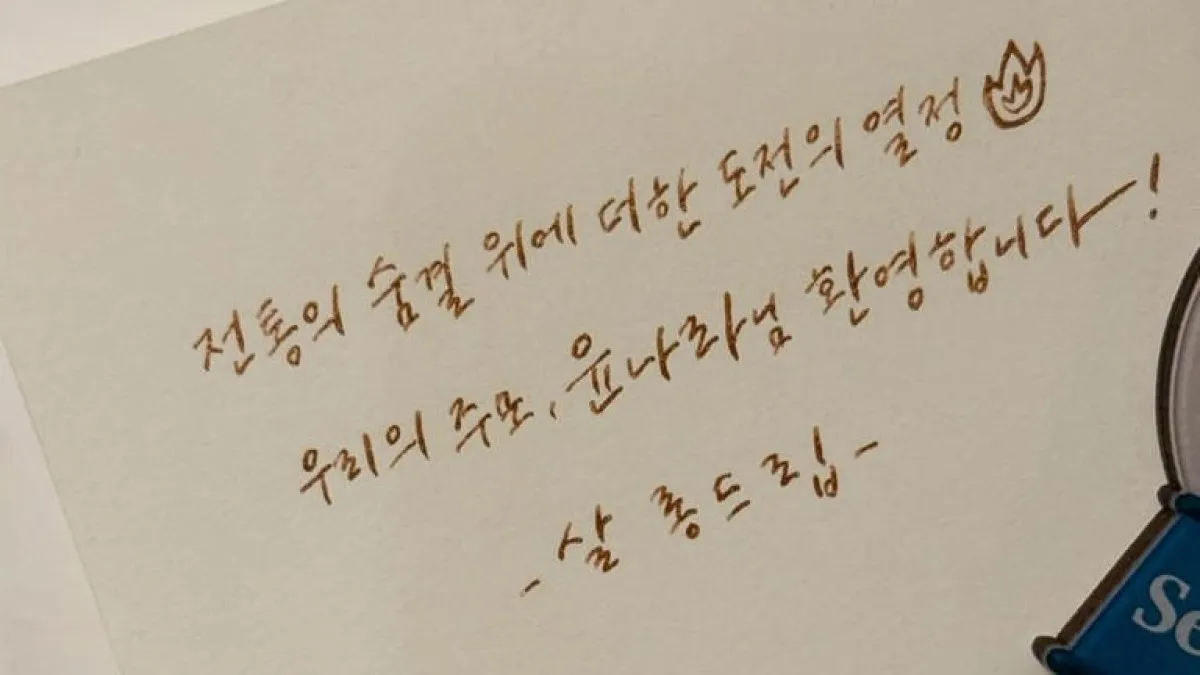 전통의 숨결 위에 더한 도전의 열정
우리의 주모, 윤나라님 환영합니다!
- 살롱드립 -
Se